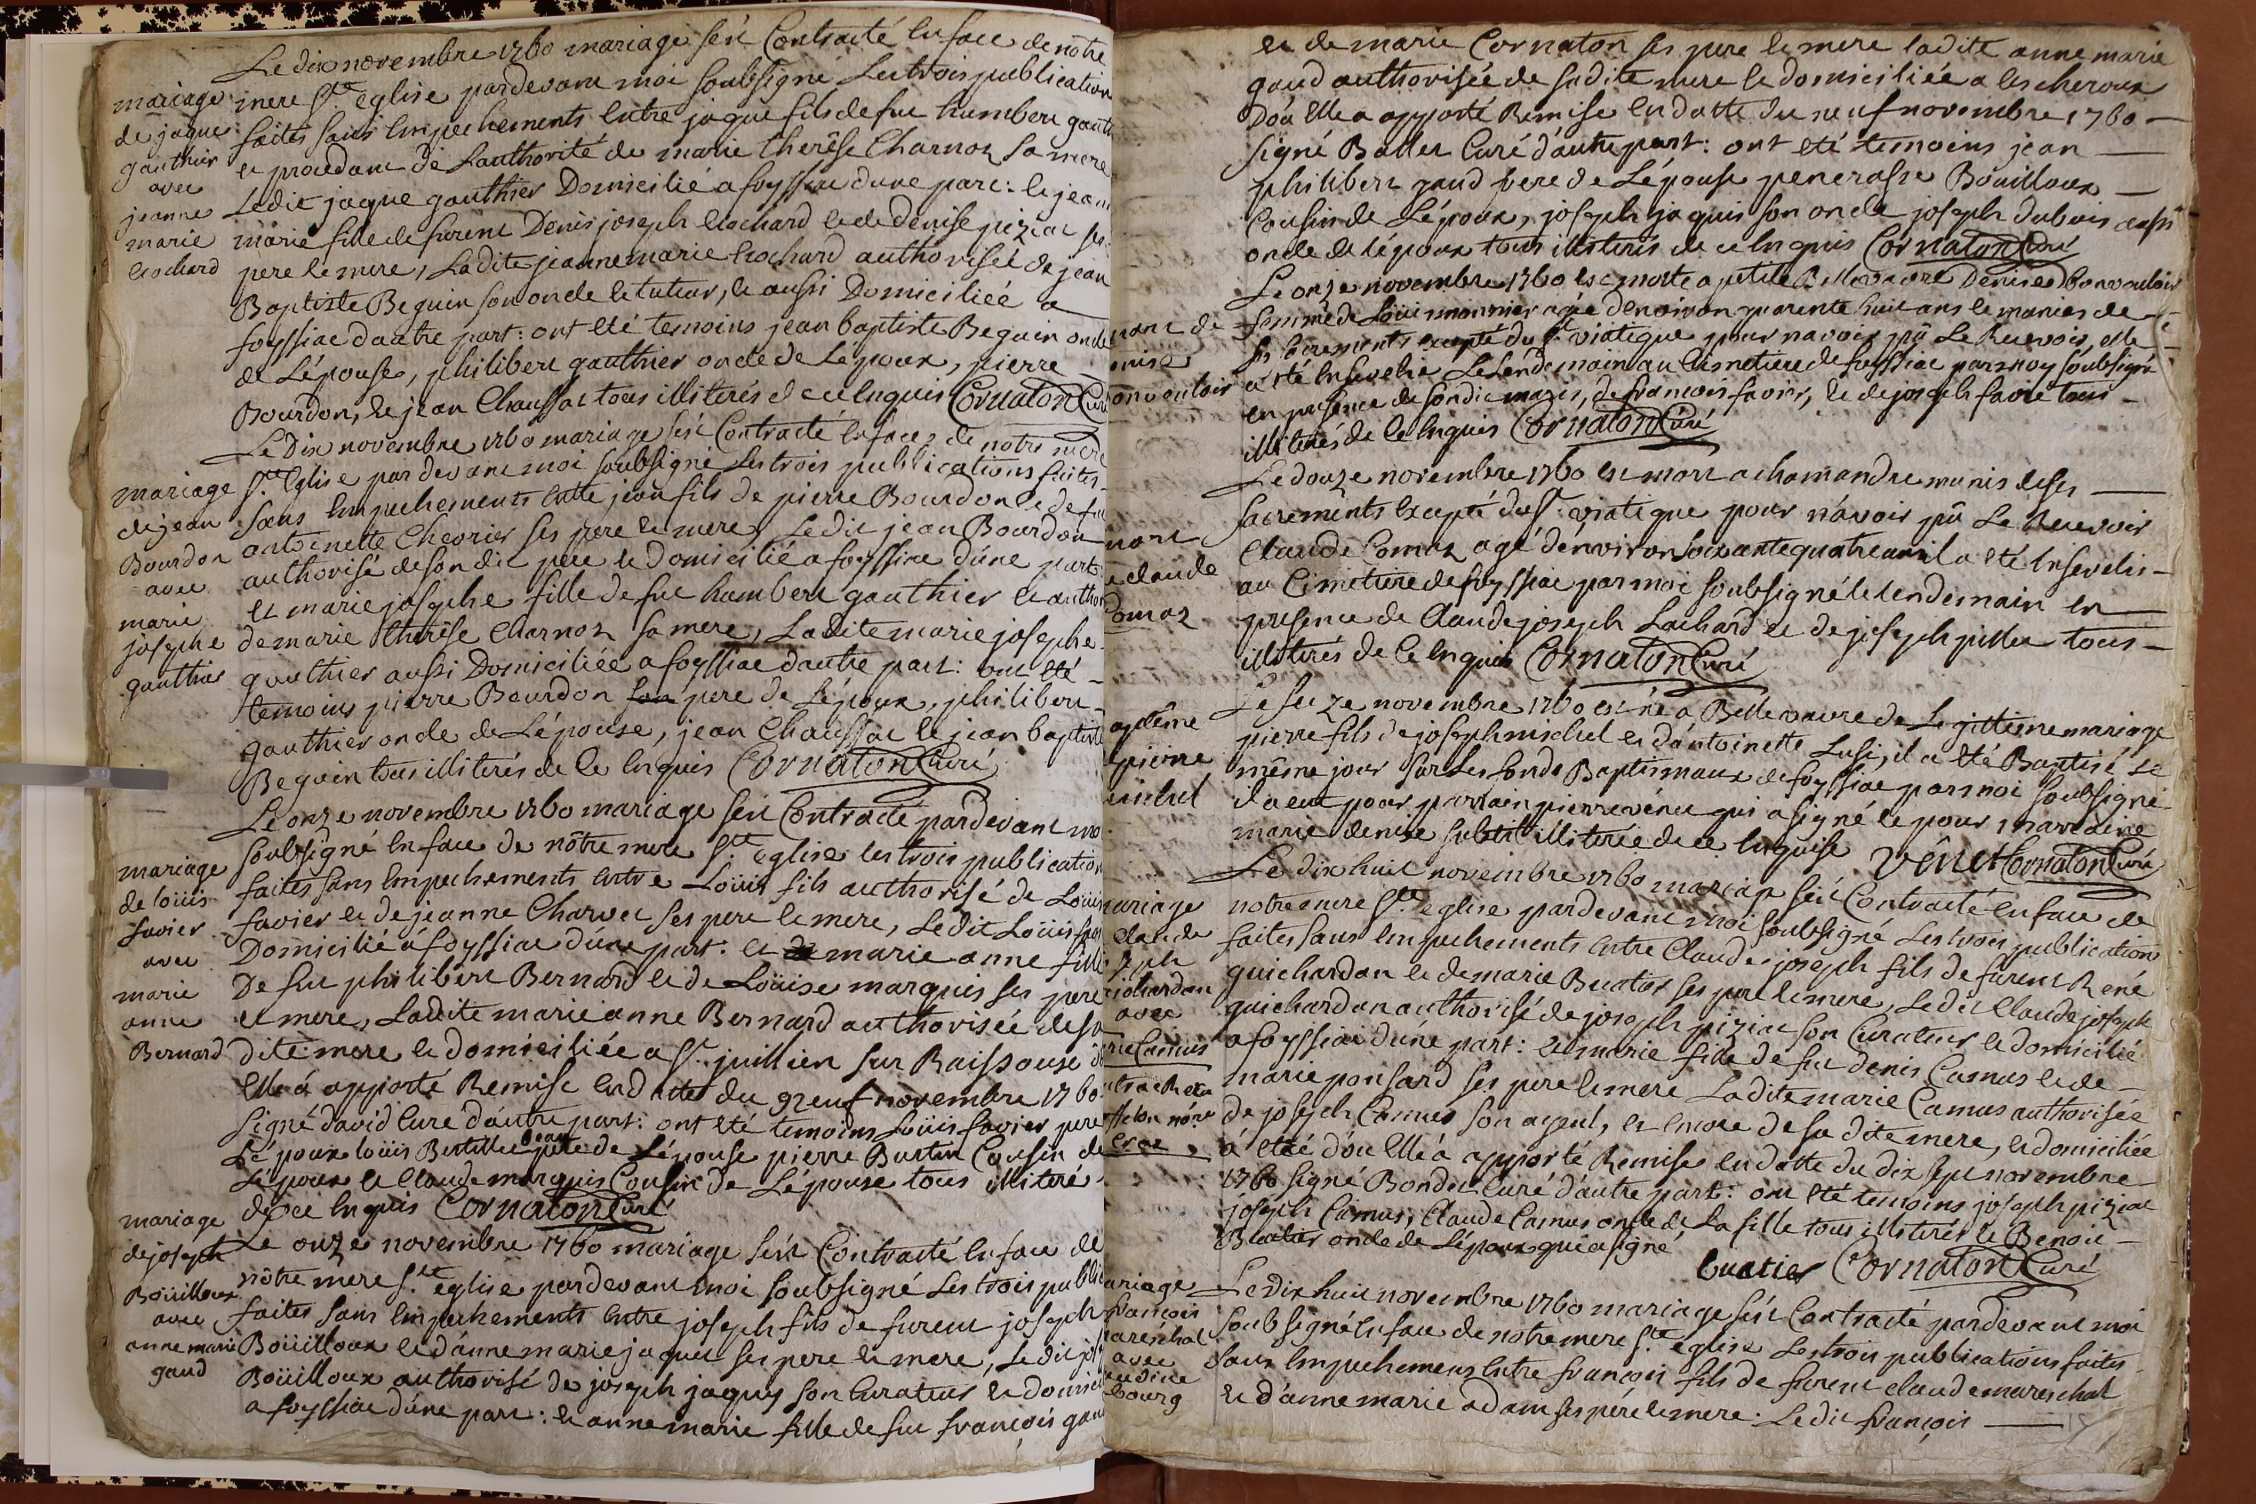 Le dix novembre 1760 mariage s'est Contracté en face de nôtre
mere Ste église pardevant moi soubsigné Les trois publication
faites sans Empechements entre jaque fils de fue humbert gauth
et procedant de L'authorité de marie therêse Charnoz sa mere
Ledit jaque gauthier Domicilié a foyssiac d'une part: et jean
marie fille de furent Denis joseph Crochard et de denise piziat ses
pere et mere, Ladite jeanne marie Crochard authorisée de jean
Baptiste Beguin son oncle et tuteur, et aussi Domiciliéé a
foyssiac d'autre part: ont eté temoins jean baptiste Beguin oncle
de L'épouse, philibert gauthier oncle de L'epoux, pierre
Bourdon, et jean Chaussat tous illiterés de ce Enquis Cornaton Curé
mariage
de jaque
gauthier
avec
jeanne
marie
Crochard
Le Dix novembre 1760 mariage s'est Contracté en face de notre mere
Ste Eglise pardevant moi soubsigné Les trois publications faites
sans Empechements entre jean fils de pierre Bourdon et de fue
antoinette Chevrier ses pere et mere, Ledit jean Bourdon
authorisé de son dit pere et Domicilié a foyssiac d'une part:
et marie josephe fille de fue humbert gauthier et author
de marie therêse Charnoz sa mere, Ladite marie josephe
gauthier aussi Domiciliée a foyssiac d'autre part: ont eté
temoins pierre Bourdon son pere de L'époux, philibert
gauthier oncle de L'épouse, jean Chaussat et jean baptiste
Beguin tous illiterés de ce Enquis Cornaton Curé
mariage
de jean
Bourdon
avec
marie
josephe
gauthier
Le onze novembre 1760 mariage s'est Contracté pardevant mo
soubsigné en face de nôtre mere Ste église les trois publication
faites sans Empechements entre Loüis fils authorisé de Loüis
favier et de jeanne Charvet ses pere et mere, Ledit Loüis
Domicilié á foyssiac d'une part: et marie anne fille
De fue philibert Bernard et de Loüise marquis ses pere
et mere, Ladite marie anne Bernard authorisée de sa
dite mere et domiciliée a St juillien sur Raissouse d
Elle á apporté Remise en datte du neuf novembre 1760
signé david Curé d'autre part: ont eté temoins Loüis favier pere
L'époux loüis beau pere de L'épouse pierre Cousin de
L'époux et Claude marquis Cousin de L'épouse tous illiteré
de ce Enquis Cornaton Curé
mariage
de loüis
favier
avec
marie
anne
Bernard
Le onze novembre 1760 mariage s'est Contracté en face de
nôtre mere Ste église pardevant moi soubsigné Les trois publi
faites sans Empechements entre joseph fils de furent joseph
Boüilloux et d'anne marie jaquis ses pere et mere, Ledit jos
Boüilloux authorisé de joseph jaquis son Curateur et domici
a foyssiac d'une part: et anne marie fille de fue françois gau
mariage
de joseph
Boüilloux
avec
anne marie
gaud
et de marie Cornaton ses pere et mere ladite anne marie
gaud authorisée de sadite mere et domiciliée a Lescheroux
D'oú Elle a apporté Remise en datte du neuf novembre 1760
signé Curé d'autre part: ont eté temoins jean
philibert gaud frere de L'épouse Boüilloux
Cousin de L'époux, joseph jaquis son oncle joseph dubois aussi
oncle de l'époux tous illiterés de ce Enquis Cornaton Curé
Le onze novembre 1760 est morte a petite Bellevavre Denise bonvouloir
femme de Loüis monnier agée d'environ quarente huit ans et munies de
ses sacrements excepté du St viatique pour n'avoir pû Le Recevoir, elle
a été Ensevelie Le Lendemain au Cimetiere de foyssiac par moy soubsigné
en presence de son dit maris, de francois favier, et de joseph favre tous
illiterés de ce Enquis Cornaton Curé
mort de
enise
onvouloir
Le douze novembre 1760 est mort a chamandre munis de ses
sacrements Excepté du St viatique pour n'avoir pû Le Recevoir
Claude Comaz agé d'environ soixante quatre ans il a eté Ensevelis
au Cimetiere de foyssiac par moi soubsigné le lendemain en
presence de Claude joseph Lachard et de joseph pillu tous
illiterés de ce Enquis Cornaton Curé
mort
e claude
Comaz
Le seize novembre 1760 est né a Bellevavre de Legittieme mariage
pierre fils de joseph michel et d'antoinette Lusi, il a eté Baptisé Le
même jour sur Les fonds Baptismaux de foyssiac par moi soubsigné
il a eut pour parrain pierre vênet qui a signé et pour marraine
marie denise subtil illiterée de ce Enquise Vênet Cornaton Curé
aptême
e pierre
michel
Le dix huit novembre 1760 mariage s'est Contracté en face de
notre mere Ste eglise pardevant moi soubsigné Les trois publications
faites sans Empechements entre Claude joseph fils de furent René
guichardan et de marie Buatier ses pere et mere, Ledit Claude joseph
guichardan authorisé de joseph piziat son Curateur et domicilié
a foyssiac d'une part: et marie fille de fue denis Camus et de
marie ponsard ses pere et mere Ladite marie Camus authorisée
de joseph Camus son ayeul, et encore de sa dite mere, et domiciliée
á etré d'oú Elle á apporté Remise en datte du dix sept novembre
1760 signé Bondet Curé d'autre part: ont eté temoins joseph piziat
joseph Camus, Claude Camus oncle de La fille tous illiterés et Benoit
Buatier oncle de L'époux qui a signé buatier Cornaton Curé
ariage
claude
seph
ichardan
avec
rie Camus
Le Dix huit novembre 1760 mariage s'est Contracté pardevant moi
soubsigné en face de notre mere Ste eglise Les trois publications faites
sans Empechemens entre françois fils de furent claude mareschal
et d'anne marie adam ses peré et mere: Ledit françois
ariage
françois
areschal
avec
audine
bourg